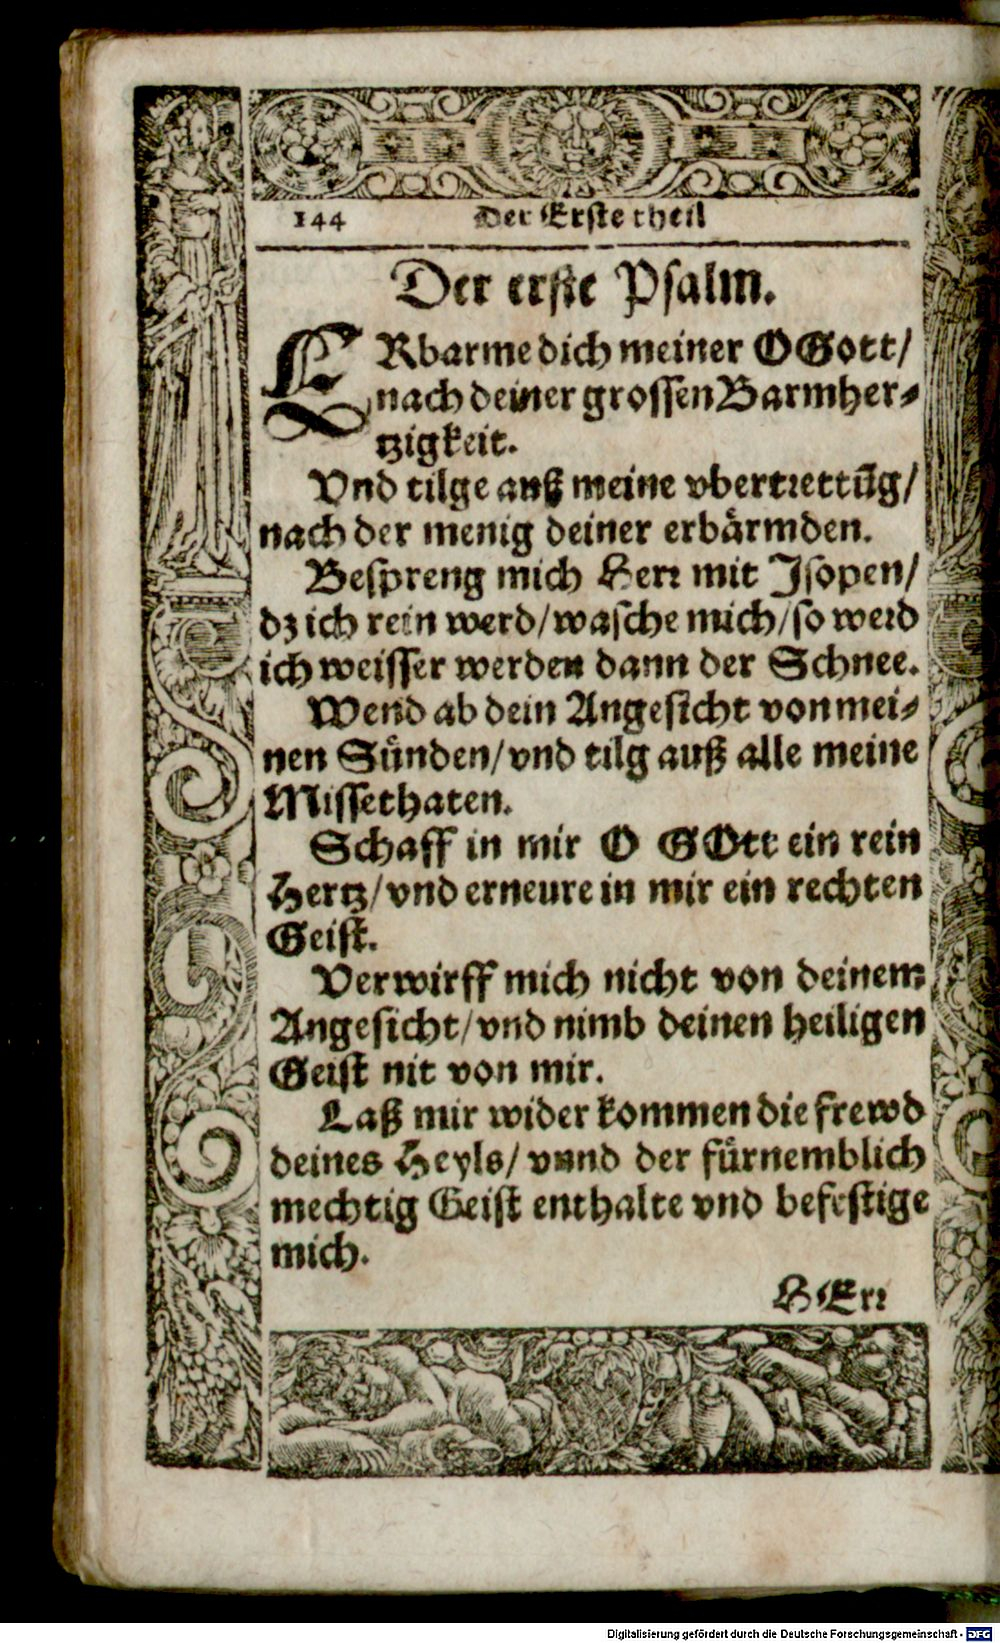 144 Der Erste theil
Der erste Psalm.
ERbarme dich meiner O Gott/
nach deiner grossen Barmher⸗
tzigkeit.
Vnd tilge auß meine vbertrettūg/
nach der menig deiner erbärmden.
Bespreng mich Herr mit Jsopen/
dz ich rein werd/ wasche mich/ so werd
ich weisser werden dann der Schnee.
Wend ab dein Angesicht von mei⸗
nen Sünden/ vnd tilg auß alle meine
Missethaten.
Schaff in mir O GOtt ein rein
Hertz/ vnd erneure in mir ein rechten
Geist.
Verwirff mich nicht von deinem
Angesicht/ vnd nimb deinen heiligen
Geist nit von mir.
Laß mir wider kommen die frewd
deines Heyls/ vnnd der fürnemblich
mechtig Geist enthalte vnd befestige
mich.
HErr
Digitalisierung gefördert durch die Deutsche Forschungsgemeinschaft - DFG